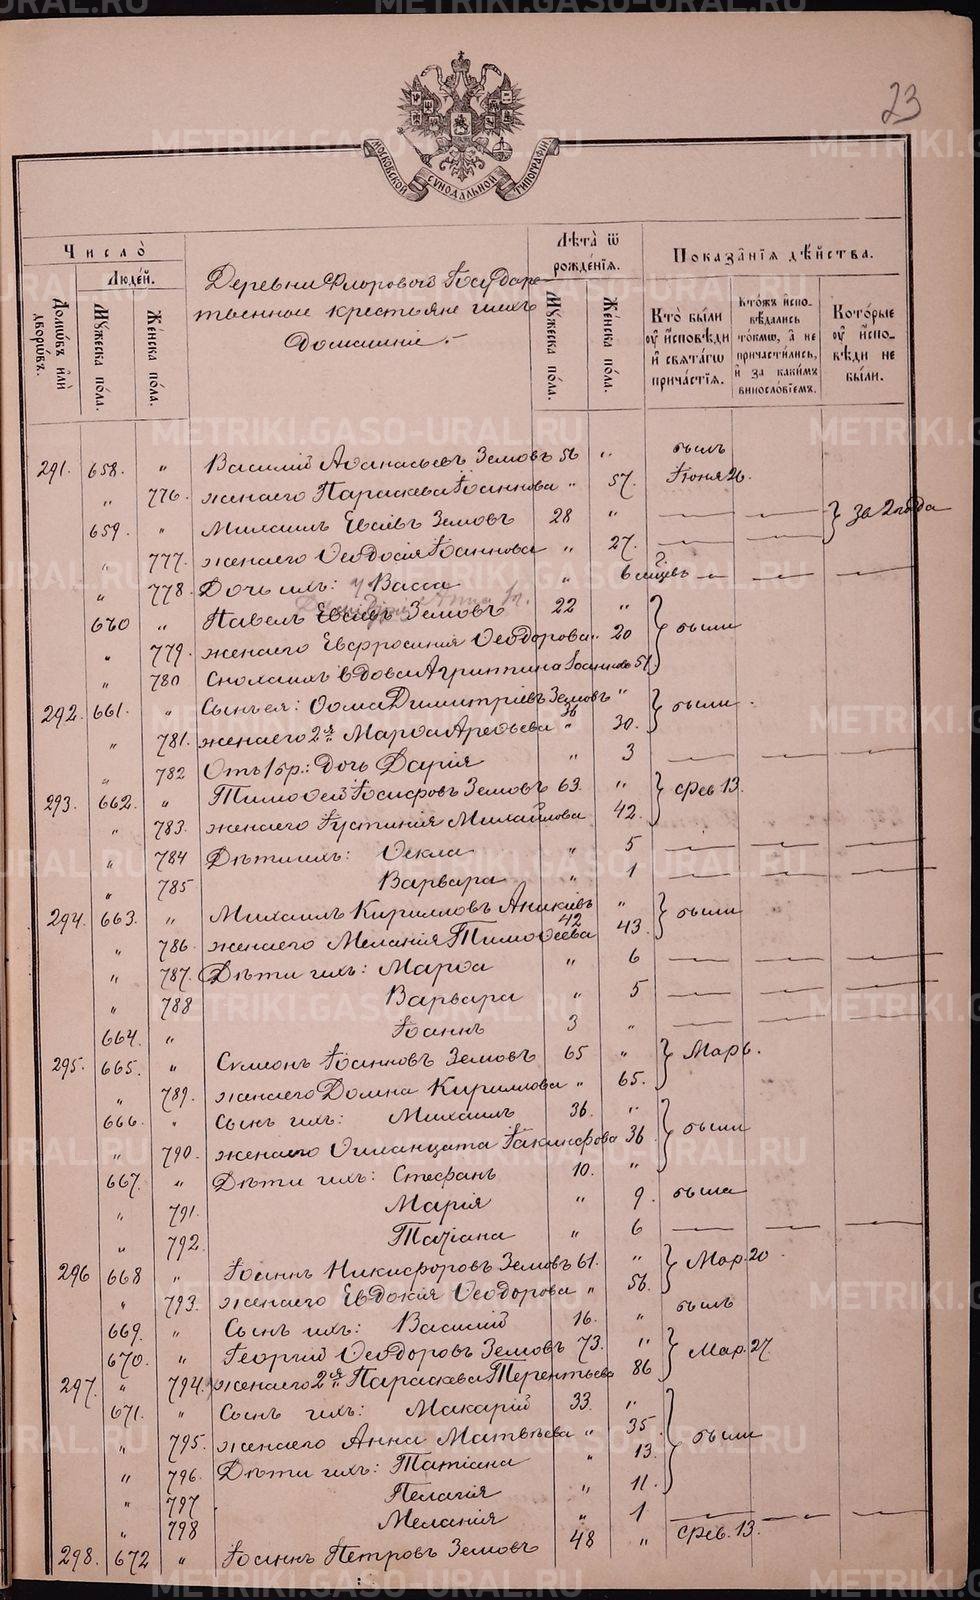 23
МОСКОВСКОЙ СѴНОДАЛЬНОЙ ТИПОГРАФІИ
Число̀
Люде́й.
Домо́въ и҆лѝ дворо́въ.
Мꙋ́жеска по́ла.
Же́нска по́ла.
Деревни Флоровой Государ
твенные крестьяне ихъ
домашніе.
Лѣ́та ѿ рожде́нїѧ.
Мꙋ́жеска по́ла.
Же́нска по́ла.
Показа̑нїѧ дѣ́йства.
Кто̀ бы́ли оу҆ и҆сповѣ́ди и҆ свѧта́гѡ причáстїѧ.
Кто́жъ и҆спо-вѣ́дались то́кмѡ, а҆ не причасти́лись, и҆ за каки́мъ винослóвїемъ.
Кото́рые оу҆ и҆спо-вѣ́ди не бы́ли.
291. 658. " Василій Аѳанасьевъ Земовъ 56 " былъ
" 776. жена его Параскева Іоаннова " 57. Іюня 26.
659. " Михаилъ Евсѣевъ Земовъ 28 " за 2 года
" 777. жена его Ѳеодосія Іоаннова " 27.
" 778. Дочь ихъ: Васса " 6 мѣсяцевъ
660 " Павелъ Евсѣевъ Земовъ 22 "
" 779. жена его Евфросинія Ѳеодорова " 20 были
" 780 Сноха ихъ вдова Агрипина Іоаннова 51.
292. 661. " Сынъ ея: Ѳома Димитріевъ Земовъ 36 " были
" 781. жена его 2я Марѳа Арефьева " 30.
" 782 Отъ 1 бр.: дочь Дарія " 3
293. 662. " Тимоѳей Іосифовъ Земовъ 63. " Фев. 13.
" 783. жена его Іустинія Михайлова 42.
" 784 Дѣти ихъ: Ѳекла " 5
" 785 Варвара " 1
294. 663. " Михаилъ Кирилловъ Аникіевъ 42 " были
" 786. жена его Меланія Тимоѳеева 43.
" 787. Дѣти ихъ: Марѳа " 6
" 788 Варвара " 5
664. " Іоаннъ 3 "
295. 665. " Сѵмеонъ Іоанновъ Земовъ 65 " Мар 6.
" 789. жена его Домна Кириллова " 65.
666. " Сынъ ихъ: Михаилъ 36. " были
" 790. жена его Іакинфова 36
667. " Дѣти ихъ: Стефанъ 10. "
" 791. Марія " 9. была
" 792. Татіана " 6
296 668 " Іоаннъ Никифоровъ Земовъ 61. " Мар. 20
" 793. жена его Евдокія Ѳеодорова " 56.
669. " Сынъ ихъ: Василій 16. " былъ
670. " Георгій Ѳеодоровъ Земовъ 73. " Мар. 27.
297. " 794. жена его 2я Параскева Терентьева 86
671. " Сынъ ихъ: Макарій 33. "
" 795. жена его Анна Матвѣева " 35. были
" 796. Дѣти ихъ: Татіана " 13.
" 797 Пелагія " 11.
" 798 Меланія " 1
298. 672 " Іоаннъ Петровъ Земовъ 48 " Фев. 13.
METRIKI.GASO-URAL.RU